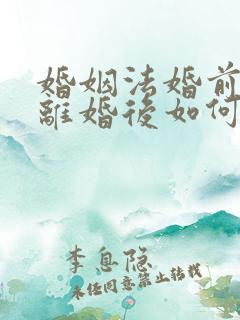 婚姻法婚前
離婚後如何
李息隐
未经同意禁止转载